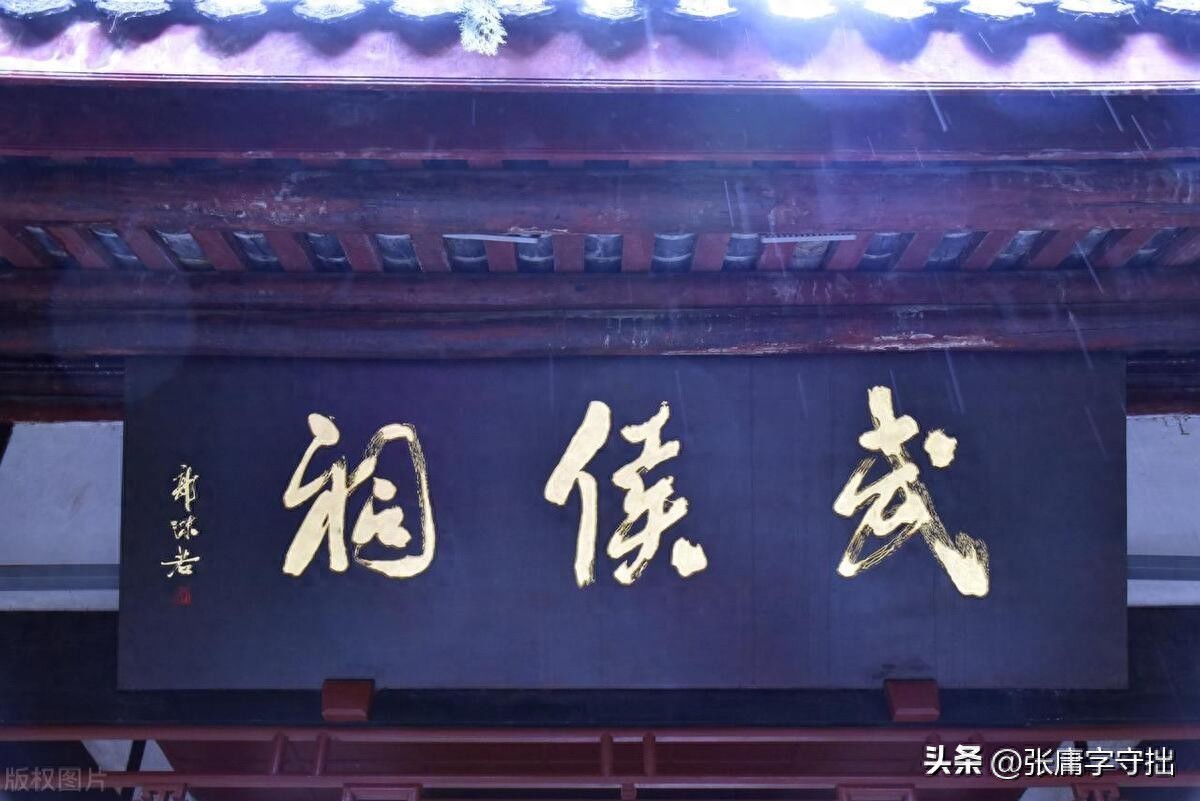 武侯祠
郭沫若
版权图片
头条 @张庸字守拙